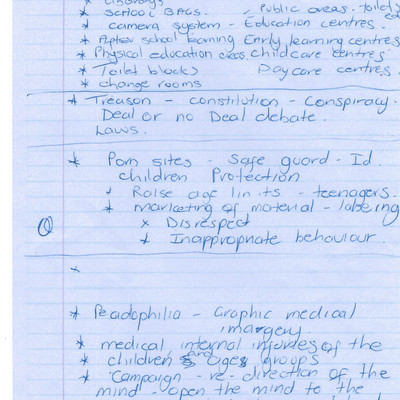 * School BAGS. - Public areas. - Toilets
* camera system - Education centres.
* After school learning Early learning centres
* Physical education areas. Childcare centres
* Toilet blocks Daycare centres.
* change rooms
* Treason - constitution - Conspiracy.
Deal or no Deal debate.
Laws.
* Porn sites - Safe guard - Id.
children Protection
* Raise age limits - teenagers.
* marketing of material - labeling
* Disrespect
* Inappropriate behaviour.
*
* Peadophilia - Graphic medical
imargery.
* medical, internal injuries of the
* children and ages groups
* Campaign - re-direction of the
mind - open the mind to the